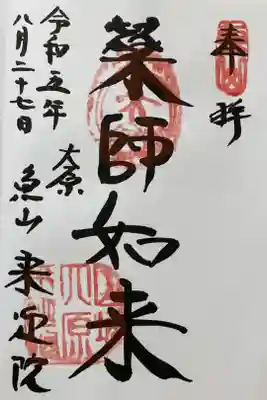 奉拝
薬師如来
令和五年
八月二十七日
大原
魚山 来迎院